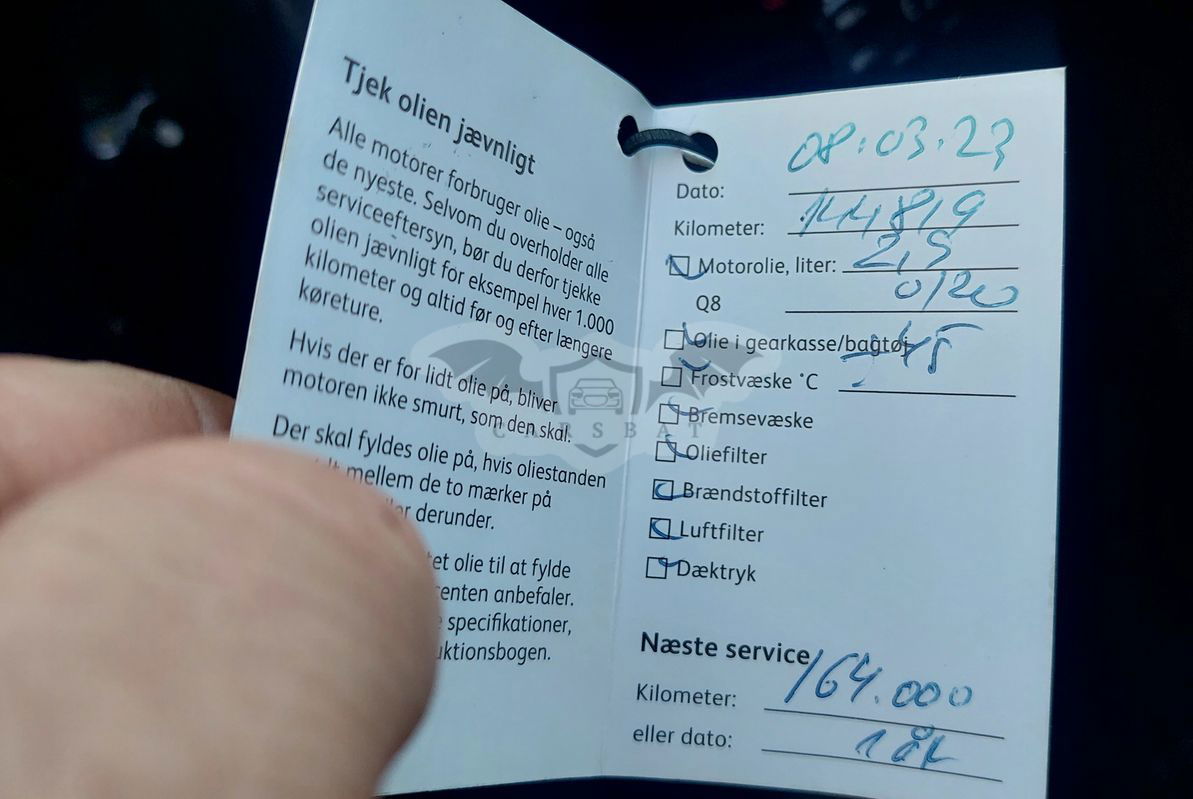 Tjek olien jævnligt
Alle motorer forbruger olie – også
de nyeste. Selvom du overholder alle
serviceeftersyn, bør du derfor tjekke
olien jævnligt for eksempel hver 1.000
kilometer og altid før og efter længere
køreture.
Hvis der er for lidt olie på, bliver
motoren ikke smurt, som den skal.
Der skal fyldes olie på, hvis oliestanden
mellem de to mærker på
derunder.
olie til at fylde
anbefaler.
specifikationer,
08.03.23
Dato:
Kilometer: 144819
Motorolie, liter: 2,5
Q8 0/20
Olie i gearkasse/bagtøj
Frostvæske °C
Bremsevæske
Oliefilter
Brændstoffilter
Luftfilter
Dæktryk
Næste service
Kilometer: 164.000
eller dato: 1 år
CARSBAT